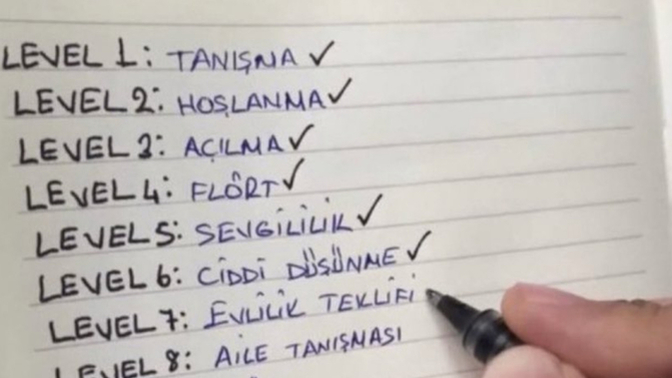 LEVEL 1: TANIŞMA ✓
LEVEL 2: HOŞLANMA ✓
LEVEL 3: AÇILMA ✓
LEVEL 4: FLÖRT ✓
LEVEL 5: SEVGİLİLİK ✓
LEVEL 6: CİDDİ DÜŞÜNME ✓
LEVEL 7: EVLİLİK TEKLİFİ
LEVEL 8: AİLE TANIŞMASI